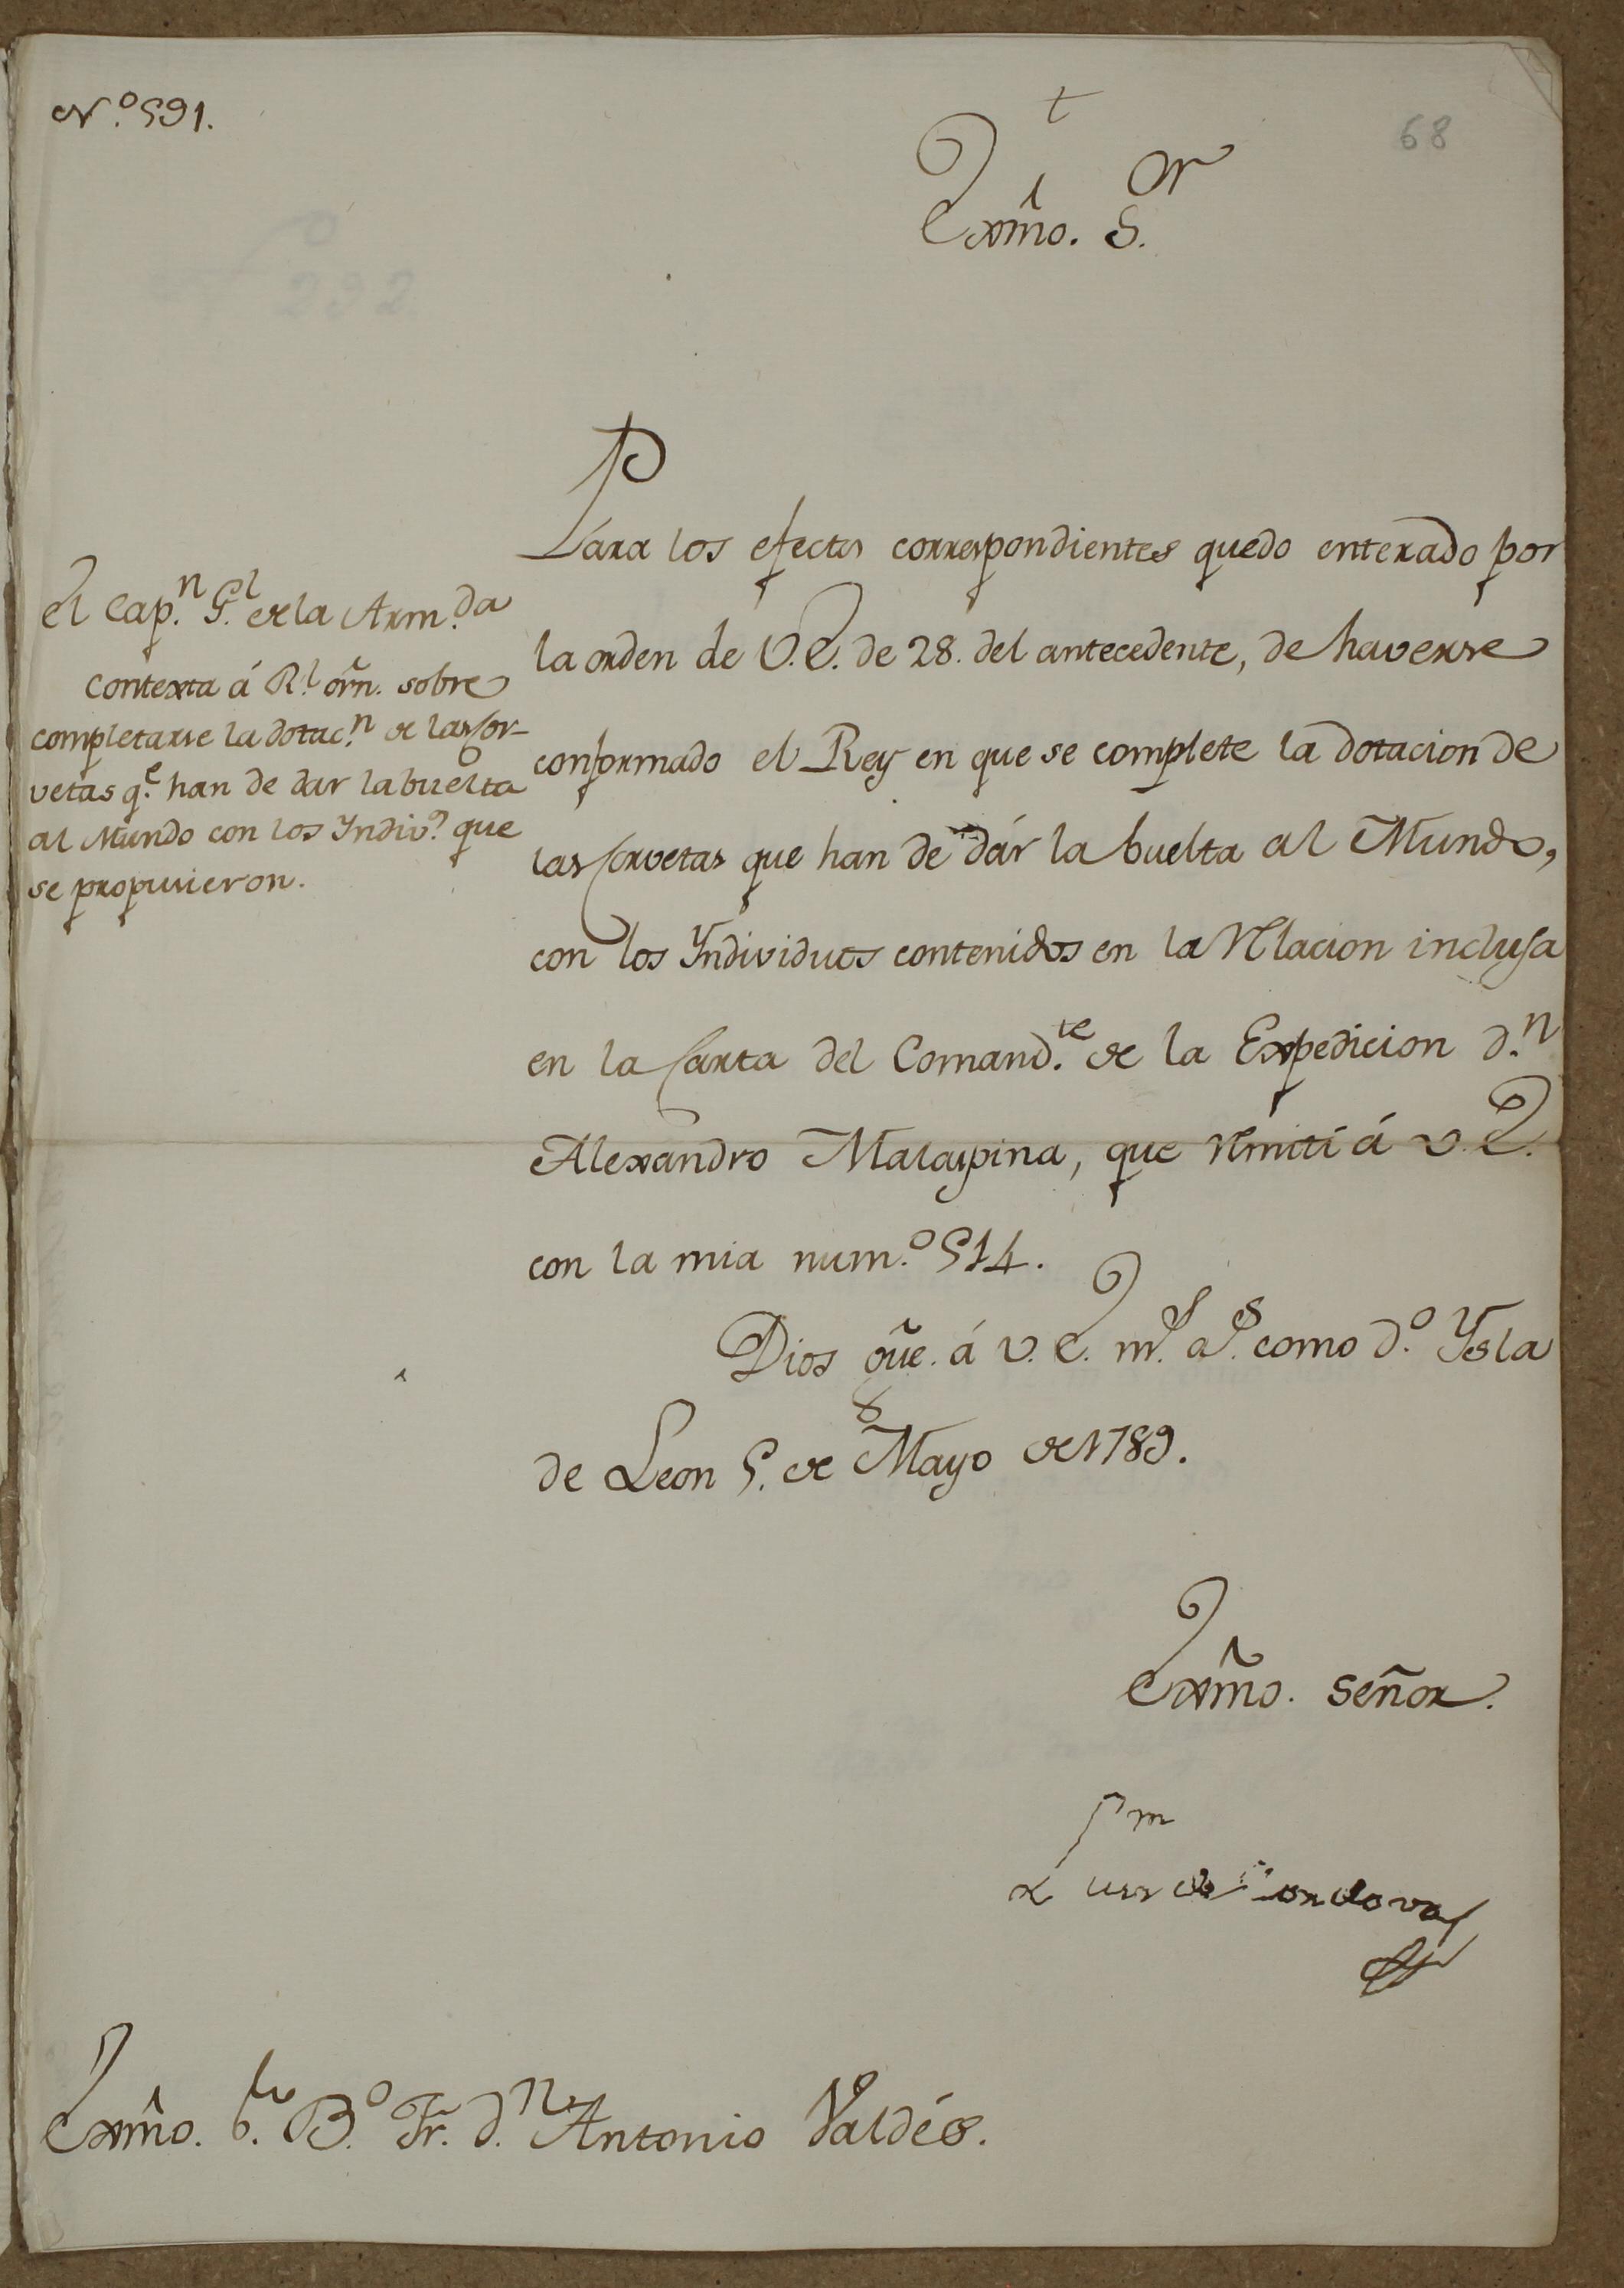 N.º 591.
68
†
Exm̃o. S.or
Pára los efectos correspondientes quedo enterado por
la orden de V.E. de 28. del antecedente, de haverse
conformado el Rey en que se complete la dotacion de
las Corvetas que han de dár la buelta al Mundo,
con los Yndividuos contenidos en la Relacion inclusa
en la Carta del Comand.te de la Expedicion d.n
Alexandro Malaspina, que remití á V.E.
con la mia num.º 514.
Dios gũe. á V.E. m.s a.s como d.º Ysla
de Leon 5. de Mayo de 1789.
el Cap.n G.l de la Arm.da
contexta á R.l orñ. sobre
completarse la dotac.n de las Cor-
vetas q.e han de dar la buelta
al Mundo con los Yndiv.s que
se propusieron.
Exm̃o. Señor.
Luis de Cordova
Exm̃o. S.or B.º Fr. d.n Antonio Valdés.